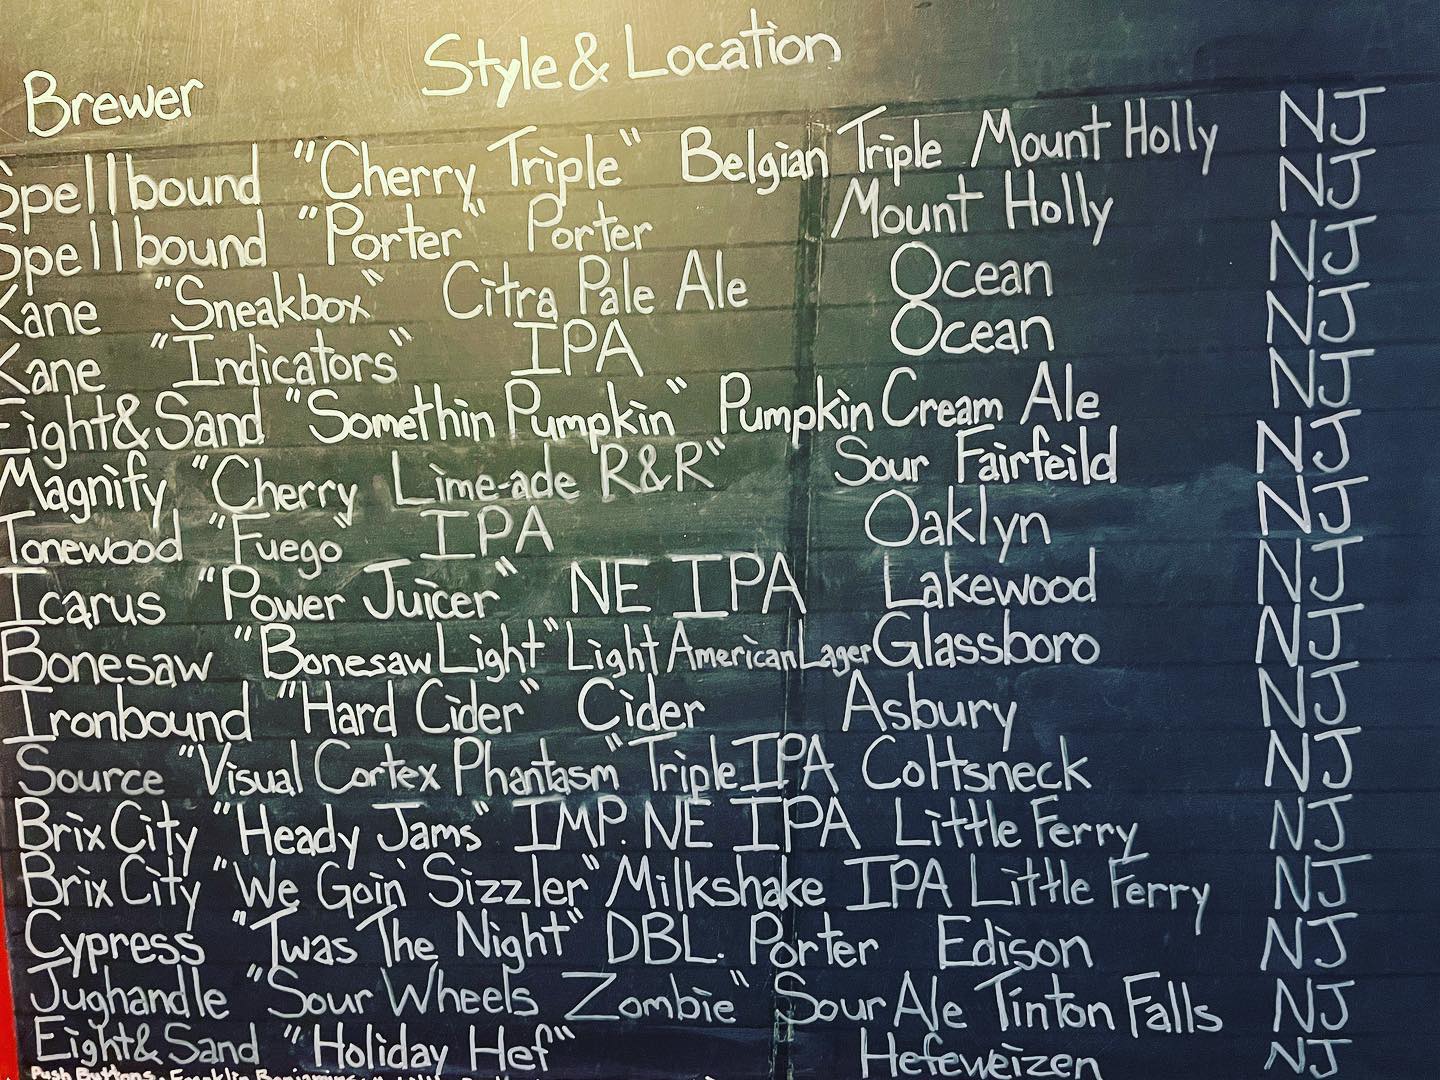 Brewer Style & Location
Spellbound "Cherry Triple" Belgian Triple Mount Holly NJ
Spellbound "Porter" Porter Mount Holly NJ
Kane "Sneakbox" Citra Pale Ale Ocean NJ
Kane "Indicators" IPA Ocean NJ
Eight&Sand "Somethin Pumpkin" Pumpkin Cream Ale NJ
Magnify "Cherry Lime-ade R&R" Sour Fairfeild NJ
Tonewood "Fuego" IPA Oaklyn NJ
Icarus "Power Juicer" NE IPA Lakewood NJ
Bonesaw "Bonesaw Light" Light American Lager Glassboro NJ
Ironbound "Hard Cider" Cider Asbury NJ
Source "Visual Cortex Phantasm" Triple IPA Coltsneck NJ
Brix City "Heady Jams" IMP. NE IPA Little Ferry NJ
Brix City "We Goin' Sizzler" Milkshake IPA Little Ferry NJ
Cypress "Twas The Night" DBL. Porter Edison NJ
Jughandle "Sour Wheels Zombie" Sour Ale Tinton Falls NJ
Eight& Sand "Holiday Hef" Hefeweizen NJ
Push Buttons